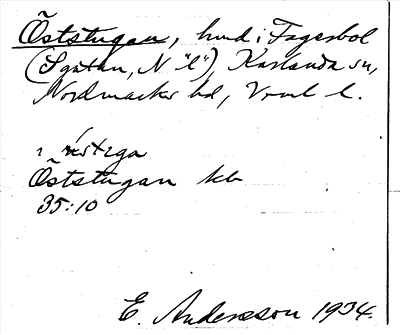 Öststugan, hmd i Fagerbol
(Sgatan, N. "l") Karlanda sn,
Nordmarks hd, Vrml l.
ı östıga
Öststugan kb
35:10
E. Andersson 1934.